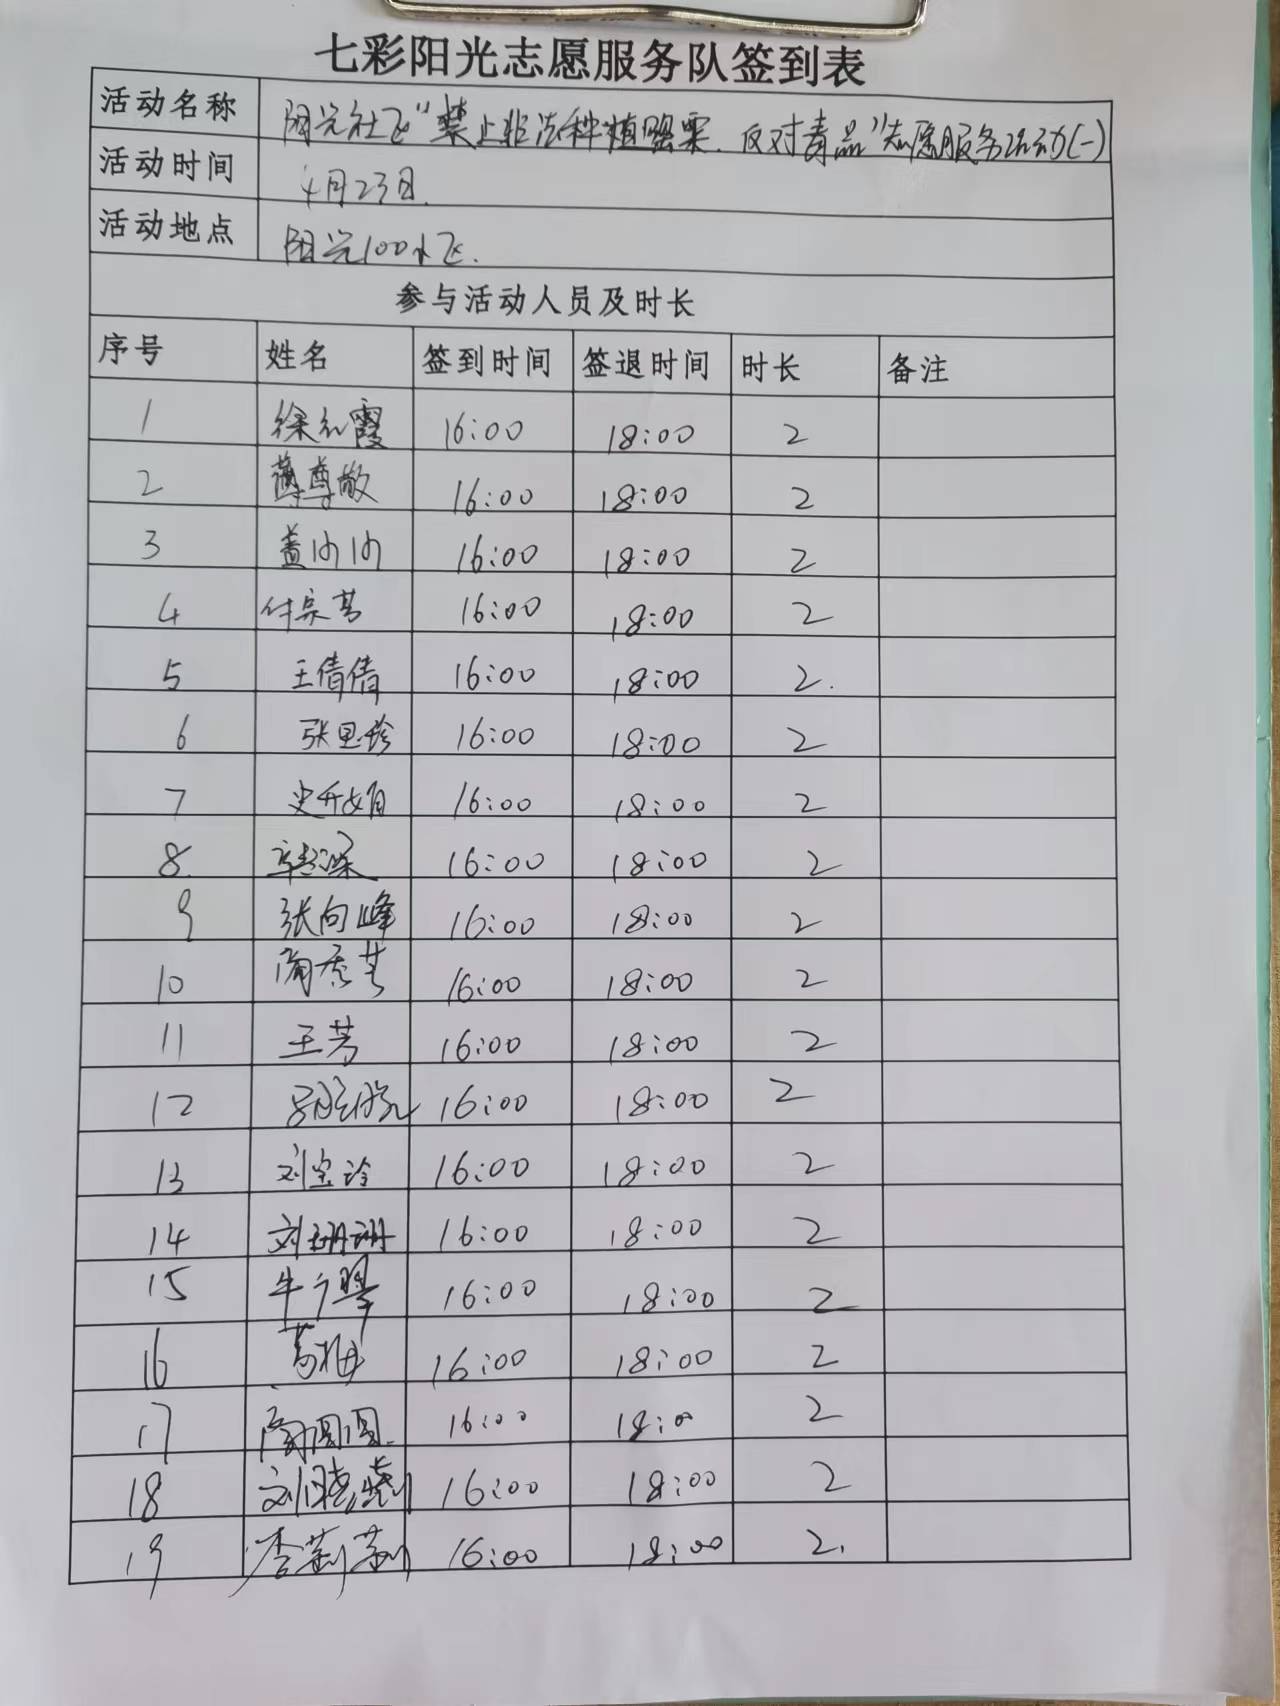 七彩阳光志愿服务队签到表
活动名称 阳光社区"禁止非法种植罂粟、反对毒品"志愿服务活动(一)
活动时间 4月23日.
活动地点 阳光100小区.
参与活动人员及时长
序号 姓名 签到时间 签退时间 时长 备注
1 徐红霞 16:00 18:00 2
2 薄尊敬 16:00 18:00 2
3 盖汋汋 16:00 18:00 2
4 付宗芳 16:00 18:00 2
5 王倩倩 16:00 18:00 2.
6 张思珍 16:00 18:00 2
7 史开娟 16:00 18:00 2
8 16:00 18:00 2
9 张向峰 16:00 18:00 2
10 16:00 18:00 2
11 王芳 16:00 18:00 2
12 16:00 18:00 2
13 刘宝玲 16:00 18:00 2
14 刘珊珊 16:00 18:00 2
15 牛广翠 16:00 18:00 2
16 葛梅 16:00 18:00 2
17 商圆圆. 16:00 18:00 2
18 刘晓燕 16:00 18:00 2
19 李莉莉 16:00 18:00 2.